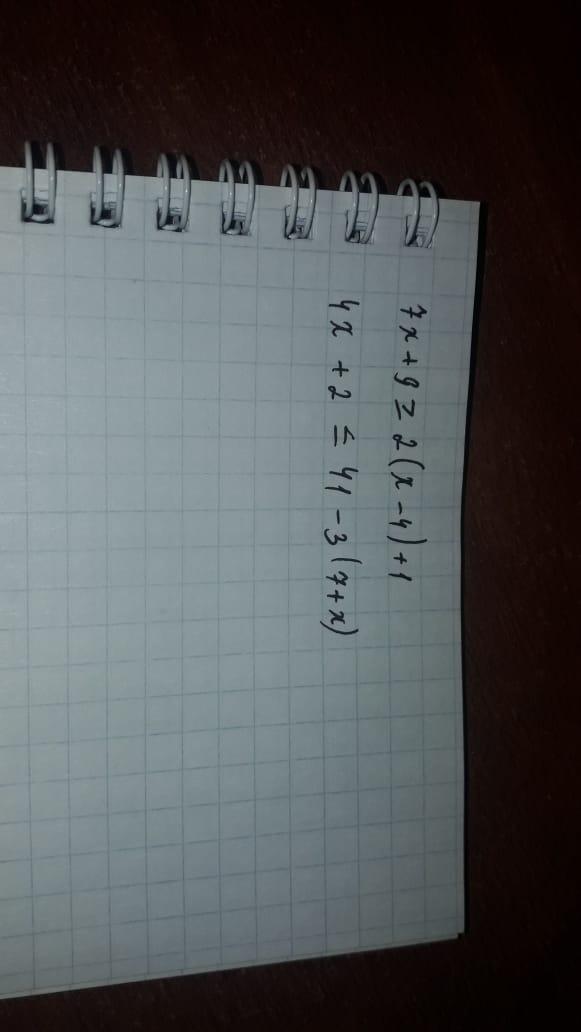 7x + 9 ≥ 2(x - 4) + 1
4x + 2 ≤ 41 - 3(7 + x)